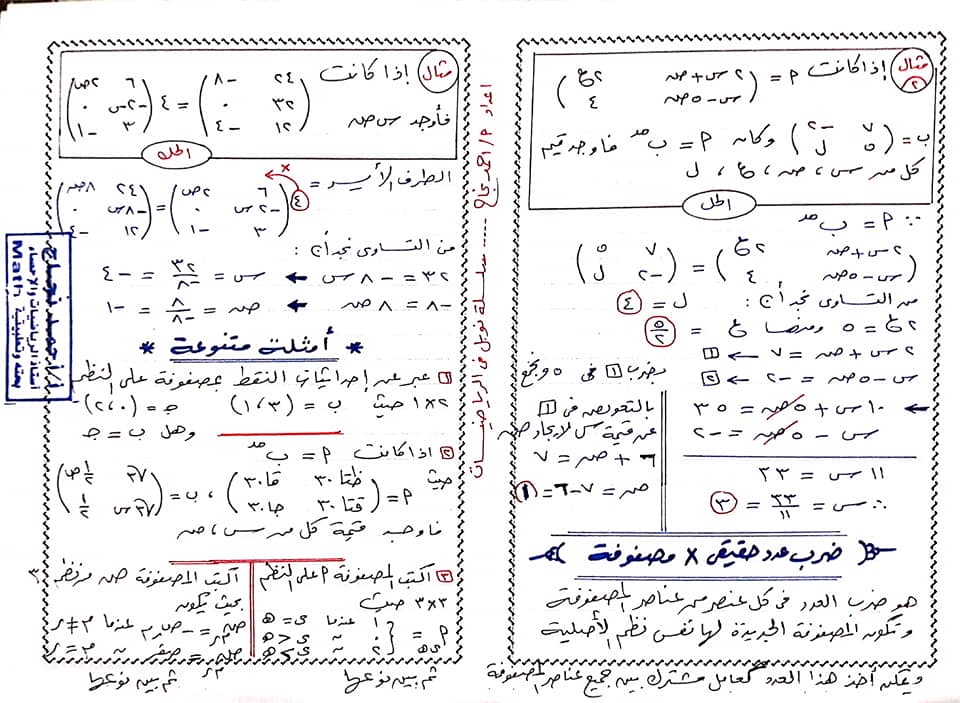 مثال ٢ إذا كانت P = (٢س+ص ٢ع
س-٥ص ٤)
ب = (٧ -٢
٥ ل) وكان P = ب مد فاوجد قيم
كل من س ، ص ، ع ، ل
الحل
∵ P = ب مد
(٢س+ص ٢ع
س-٥ص ٤) = (٧ ٥
-٢ ل)
من التساوى نجد أن : ل = ٤
٢ع = ٥ ومنها ع = ٥/٢
٢س+ص = ٧ ← ١
س-٥ص = -٢ ← ٢
بضرب ١ فى ٥ وجمع
← ١٠س + ٥ص = ٣٥
س - ٥ص = -٢
١١س = ٣٣
∴ س = ٣٣/١١ = ٣
بالتعويض فى ١
عن قيمة س لايجاد ص
٦ + ص = ٧
ص = ٧-٦ = ١
ضرب عدد حقيقى × مصفوفة
هو ضرب العدد فى كل عنصر من عناصر المصفوفة
وتكون المصفوفة الجديدة لها نفس نظم الأصلية
ويمكن أخذ هذا العدد كعامل مشترك بين جميع عناصر المصفوفة
اعداد م/احمد نجاح ----- سلسلة نوبل فى الرياضيات
مثال إذا كانت (٢٤ -٨
٣٢ ٠
١٢ -٤) = ٤ (٦ ٢ص
-٢س ٠
٣ -١)
فأوجد س ص
الحل
الطرف الأيسر = ٤ (٦ ٢ص
-٢س ٠
٣ -١) = (٢٤ ٨ص
-٨س ٠
١٢ -٤)
من التساوى نجد أن :
٣٢ = -٨س ← س = ٣٢/-٨ = -٤
-٨ = ٨ص ← ص = ٨/-٨ = -١
* أمثلة متنوعة *
١ عبر عن إحداثيات النقط بمصفوفة على النظم
٢×١ حيث ب = (٣،١) جـ = (٠،-٢)
وهل ب = جـ
٢ اذا كانت P = ب مد
حيث P = (ظتا٣٠ قا٣٠
قتا٣٠ جا٣٠) ، ب = (√٣ ١/٢ص
√٣س ١/٢)
فاوجد قيمة كل من س ، ص
٣ اكتب المصفوفة P على النظم
٣×٣ حيث
١ عندما ى = هـ
ثم بين نوعها
أكتب المصفوفة ص من نظم ٣
بحيث يكون
ثم بين نوعها
أ / أحمد نجاح
أستاذ الرياضيات والإحصاء
بحتة وتطبيقية Math